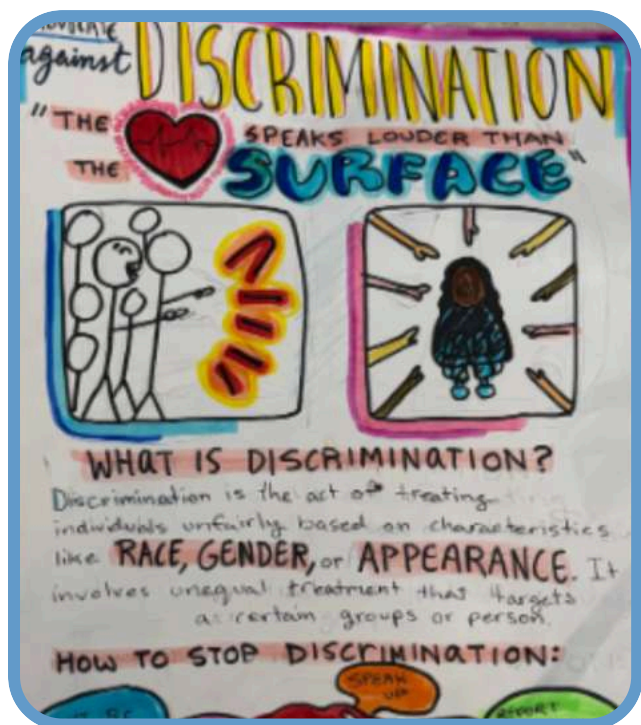 ADVOCATE
against DISCRIMINATION
"THE SPEAKS LOUDER THAN
THE SURFACE"
WHAT IS DISCRIMINATION?
Discrimination is the act of treating
individuals unfairly based on characteristics
like RACE, GENDER, or APPEARANCE. It
involves unequal treatment that targets
a certain groups or person.
HOW TO STOP DISCRIMINATION:
SPEAK
UP
REPORT